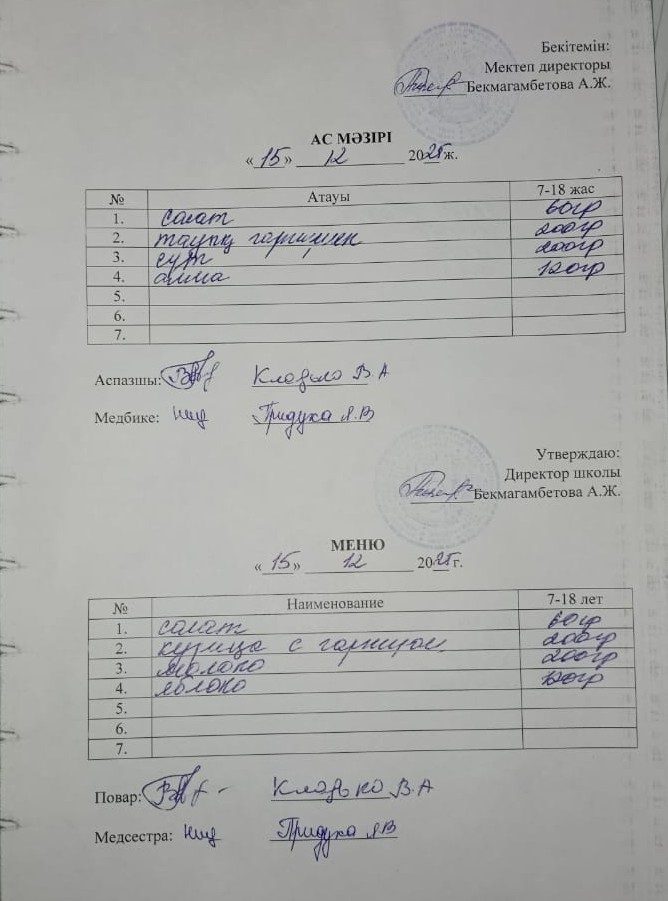 Бекітемін:
Мектеп директоры
Бекмагамбетова А.Ж.
АС МӘЗІРІ
« 15 » 12 2025 ж.
№ Атауы 7-18 жас
1. салат 60гр
2. тауық гарнирмен 200гр
3. сүт 200гр
4. алма 120гр
5.
6.
7.
Аспазшы: В А
Медбике: Придуха Я.В
Утверждаю:
Директор школы
Бекмагамбетова А.Ж.
МЕНЮ
« 15 » 12 2025 г.
№ Наименование 7-18 лет
1. салат 60гр
2. курица с гарниром 200гр
3. молоко 200гр
4. яблоко 120гр
5.
6.
7.
Повар: Кладько В.А
Медсестра: Придуха Я.В